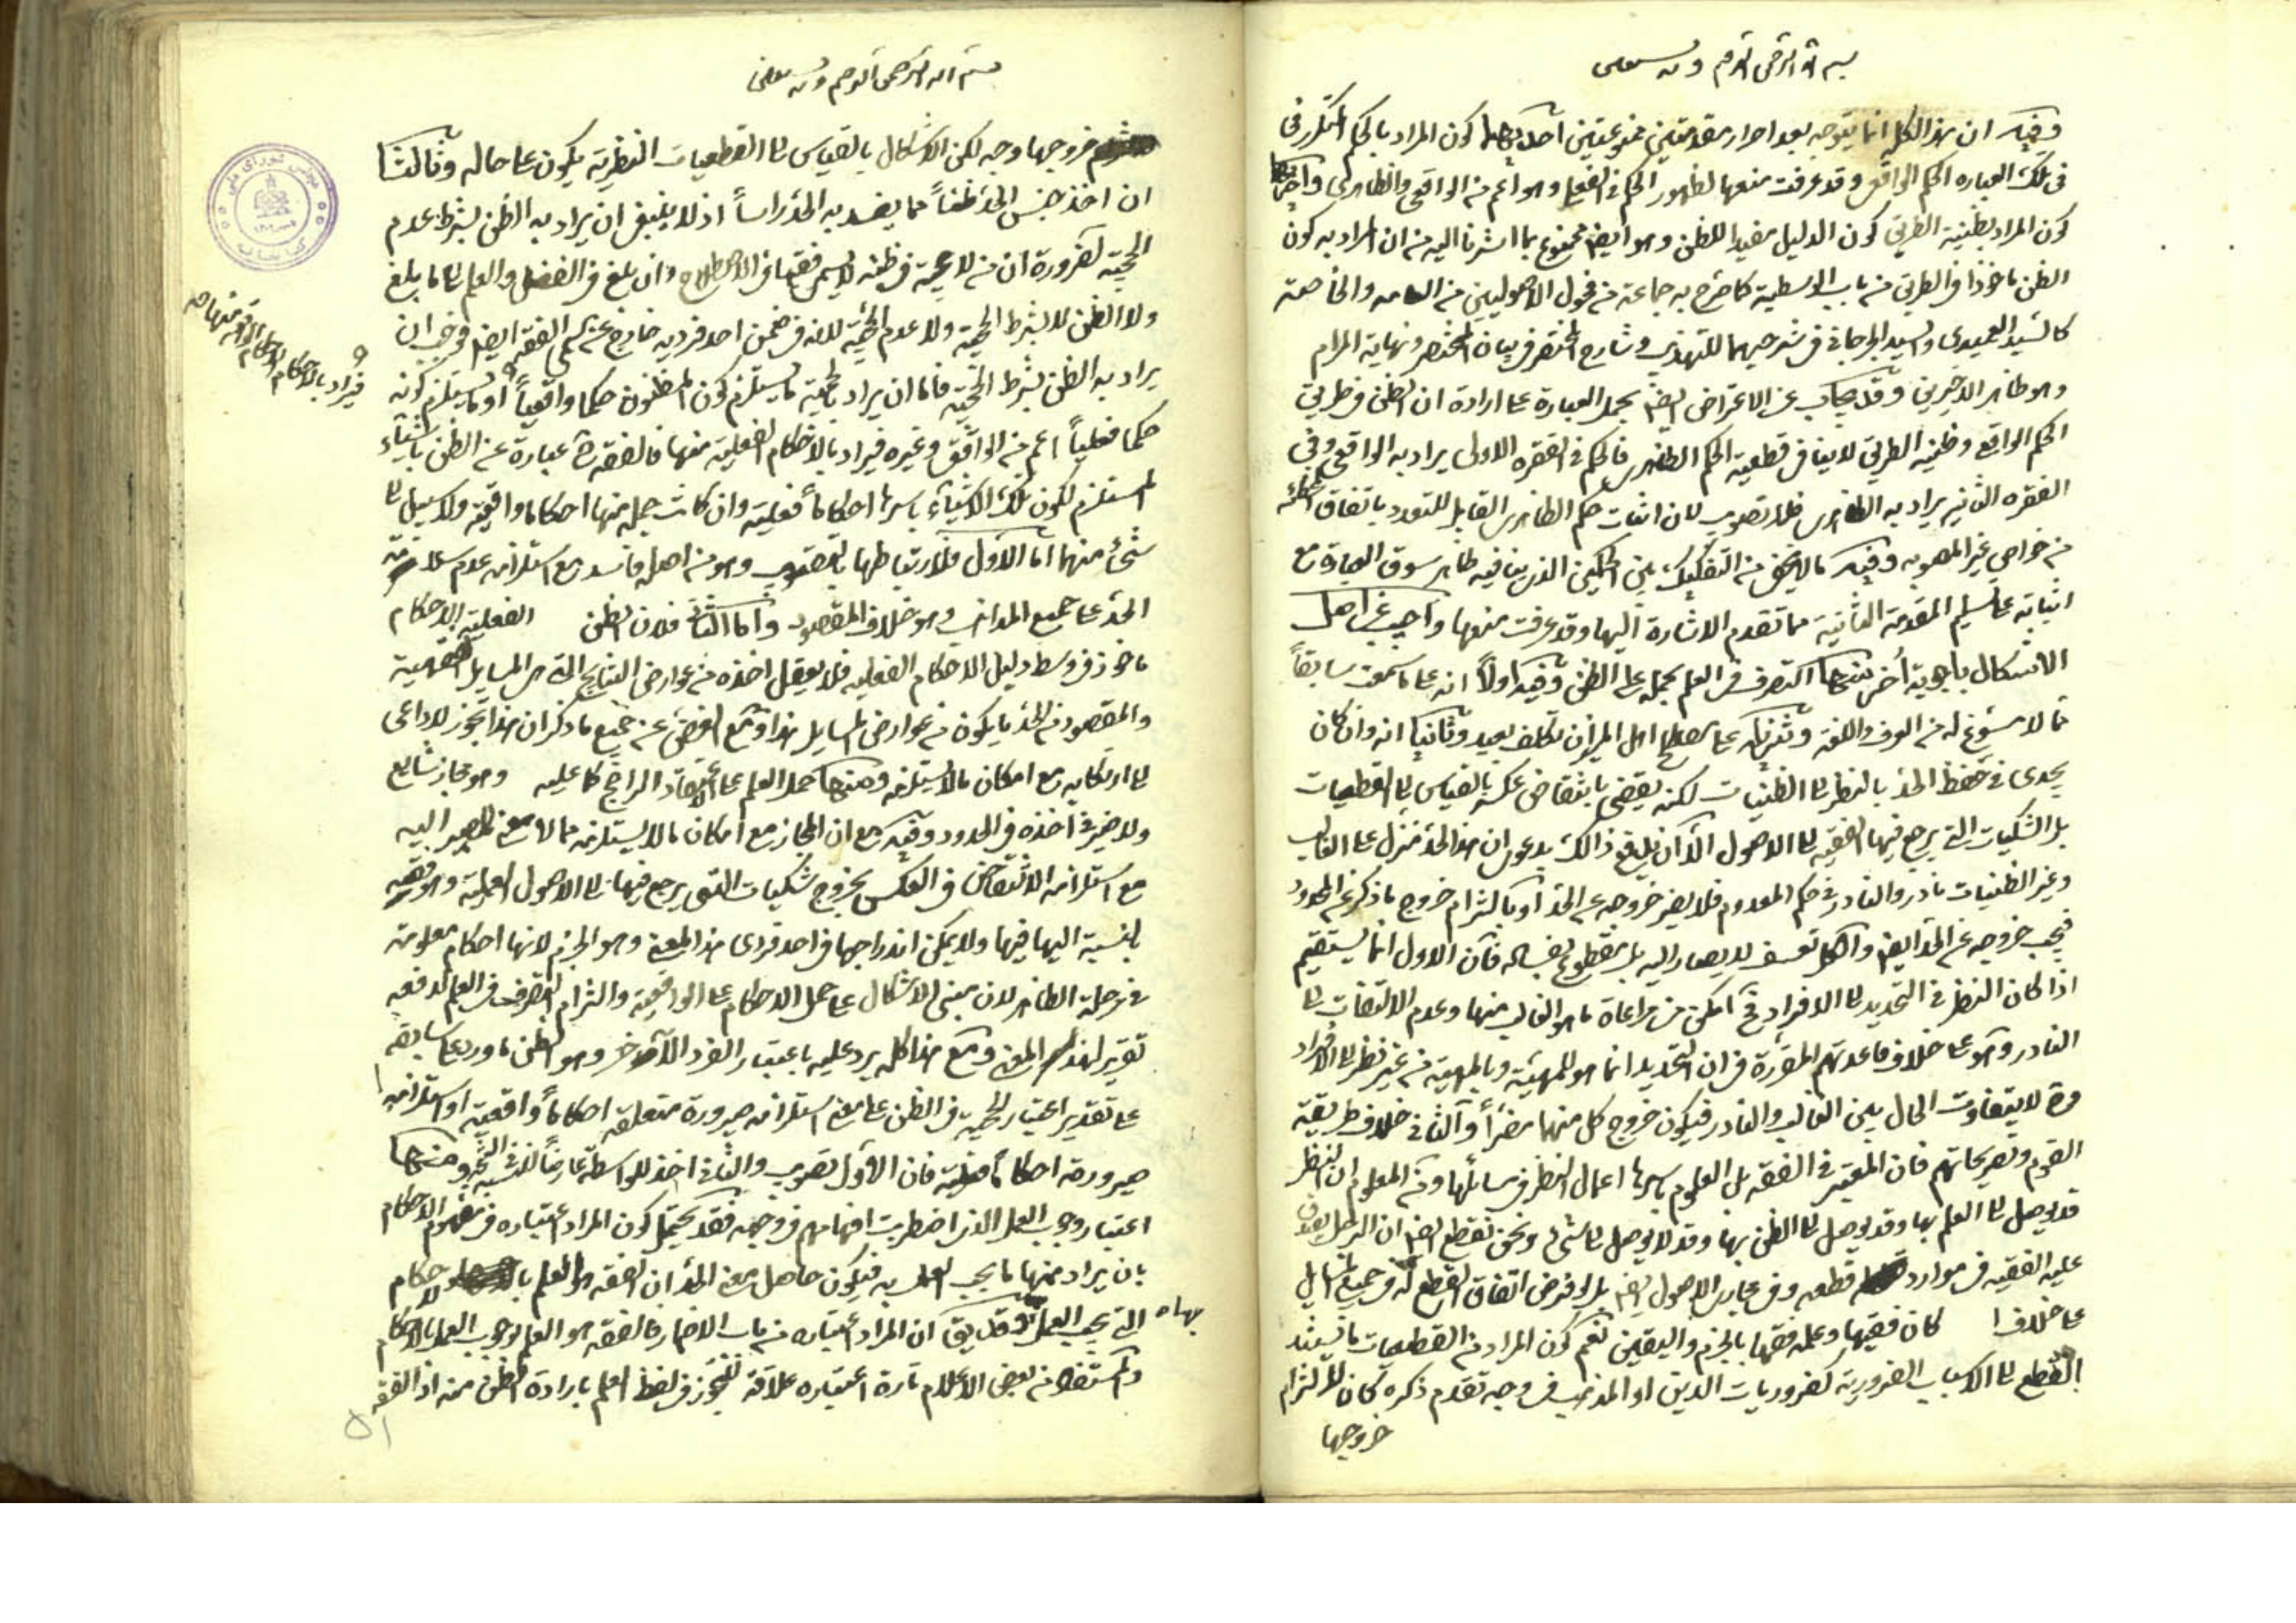 بسم الله الرحمن الرحيم وبه نستعين
وفيه ان هذا الكلام انما يتوجه بعد احراز مقدمتين ممنوعتين احديهما كون المراد بالحكم المتكرر فى
فى تلك العباره الحكم الواقعى وقد عرفت منعها لظهور الحكم فى الفعلى وهو اعم من الواقعى والظاهرى واخريهما
كون المراد بظنية الطريق كون الدليل مفيدا للظن وهو ايضا ممنوع بما اشرنا اليه من ان المراد به كون
الظن ماخوذا فى الطريق من باب الوسطية كما صرح به جماعة من فحول الاصوليين من العامه والخاصة
كالسيد العميدى والسيد الجرجانى فى شرحيهما للتهذيب وشارح المختصر فى بيان المختصر ونهاية المرام
وهو ظاهر الاخيرين وقد يجاب عن الاعتراض ايضا بحمل العبارة على ارادة ان الظن فى طريق
الحكم الواقع وظنيه الطريق لا ينافى قطعية الحكم الظاهرى فالحكم فى الفقره الاولى يراد به الواقعى وفى
الفقره الثانيه يراد به الظاهرى فلا تصويب لان اثبات حكم الظاهرى القابل للتعدد باتفاق المخطئه
من خواص غير المصوبه وفيه ما لا يخفى من التفكيك بين الحكمين الذى ينافيه ظاهر سوق العبارة مع
ابتنائه على تسليم المقدمة الثانية مما تقدم الاشارة اليها وقد عرفت منعها واجيب عن اصل
الاشكال باجوبة أخر منها التصرف فى العلم بحمله على الظن وفيه اولاً انه على ما سمعت سابقاً
مما لا مسوغ له من العرف واللغه وتنزيله على مصطلح اهل الميزان تكلف بعيد وثانياً انه وان كان
يجدى فى حفظ الحد بالنظر الى الظنيات لكنه يقضى بانتقاض عكسه بالقياس الى القطعيات
بل الشكيات التى يرجع فيها الفقيه الى الاصول الا ان يدفع ذالك بدعوى ان هذا الحد منزل على الغالب
وغير الظنيات نادر والنادر فى حكم المعدوم فلا يضر خروجه عن الحد او بالتزام خروج ما ذكر عن المحدود
فيجب خروجه عن الحد ايضا والكل تعسف لا يصار اليه بل مقطوع بفساده فان الاول انما يستقيم
اذا كان النظر فى التحديد الى الافراد فح امكن مراعاة ما هو الغالب منها وعدم الالتفات الى
النادر وهو على خلاف قاعدتهم المقررة فى ان التحديد انما هو للمهية وبالمهية من غير نظر الى الافراد
وح لا يتفاوت الحال بين الغالب والنادر فيكون خروج كل منها مضراً والثانى خلاف طريقة
القوم وتصريحاتهم فان المعتبر فى الفقه بل العلوم باسرها اعمال النظر فى مسائلها ومن المعلوم ان النظر
قد يوصل الى العلم بها وقد يوصل الى الظن بها وقد لا يوصل الى شىء ونحن نقطع ايضا ان الرجل يصدق
عليه الفقيه فى موارد قطعه وفى مجارى الاصول ايضا بل لو فرض اتفاق القطع له فى جميع المسايل
على خلافها كان فقيها وعلمه فقها بالجزم واليقين نعم لو كون المراد من القطعيات ما يستند
القطع الى الاسباب الضرورية كضروريات الدين او المذهب فى وجه تقدم ذكره كان لالتزام
خروجها
بسم الله الرحمن الرحيم وبه نستعين
خروجها وجه لكن الاشكال بالقياس الى القطعيات النظرية يكون على حاله وثالثاً
ان اخذ جنس الحد ظناً مما يفسد به الحد راساً اذ لا ينبغى ان يراد به الظن بشرط عدم
الحجية لضرورة ان من لا حجية فى ظنه لا يسمى فقيها فى الاصطلاح وان بلغ فى الفضل والعلم الى ما بلغ
ولا الظن لا بشرط الحجية ولا عدم الحجية لانه فى ضمن احد فرديه خارج عن الفقه ايضا فوجب ان
يراد به الظن بشرط الحجية فاما ان يراد بالحجية ما يستلزم كون المظنون حكما واقعياً او ما يستلزم كونه
حكما فعلياً اعم من الواقعى وغيره فيراد بالاحكام الفعلية منها فالفقه ح عبارة عن الظن باشياء
المستلزم لكون تلك الاشياء باسرها احكاماً فعلية وان كانت جملة منها احكاما واقعية ولا سبيل الى
شىء منهما اما الاول فلارتباطها بالتصويب وهو من اصله فاسد مع استلزامه عدم سلامة
الحد على جميع المذاهب وهو خلاف المقصود واما الثانى فلان الظن الفعلية بالاحكام
ماخوذ فى وسط دليل الاحكام الفعليه فلا يعقل اخذه من عوارض النتايج التى هى المسايل الفقهية
والمقصود من الحد ما يكون من عوارض المسايل هذا ومع الغض عن جميع ما ذكر ان هذا تجوز لا داعى
الى ارتكابه مع امكان ما لا يستلزمه ومنها حمل العلم على الاعتقاد الراجح كما عليه وهو مجاز شايع
ولا ضير فى اخذه فى الحدود وفيه مع ان المجاز مع امكان ما لا يستلزمه مما لا معنى للمصير اليه
مع استلزامه الانتقاض فى العكس بخروج شكيات التى يرجع فيها الى الاصول العملية وهو فقيه
بالنسبة اليها فيها ولا يمكن اندراجها فى احد فردى هذا المعنى وهو الجزم لانها احكام معلومة
فى مرحلة الظاهر لان مبنى الاشكال على حمل الاحكام على الواقعية والتزام التصرف فى العلم لدفعه
تقرير لهذا المعنى ومع هذا كله يرد عليه باعتبار الفرد الآخر وهو الظن ما ورد على سابقه
على تقدير اعتبار الحجية فى الظن على معنى استلزامه صيرورة متعلقه احكاماً واقعية او استلزامه
صيرورته احكاماً فعلية فان الاول تصويب والثانى اخذ للواسطة عارضاً للنتيجة ومنها
اعتبار وجوب العمل الذى اضطربت افهامهم فى وجهه فقد يحتمل كون المراد اعتباره فى مفهوم الاحكام
بان يراد منها ما يجب العمل به فيكون حاصل معنى الحد ان الفقه هو العلم بالاحكام
التى يجب العمل بها وقد يق ان المراد اعتباره من باب الاضمار فالفقه هو العلم بوجوب العمل بالاحكام
والمستفاد من بعض الاعلام تارة اعتباره علاقة للتجوز فى لفظ العلم بارادة الظن منه اذ الفقه
فيراد بالاحكام الاحكام الواقعية منها صح
مجلس شورای ملی
کتابخانه